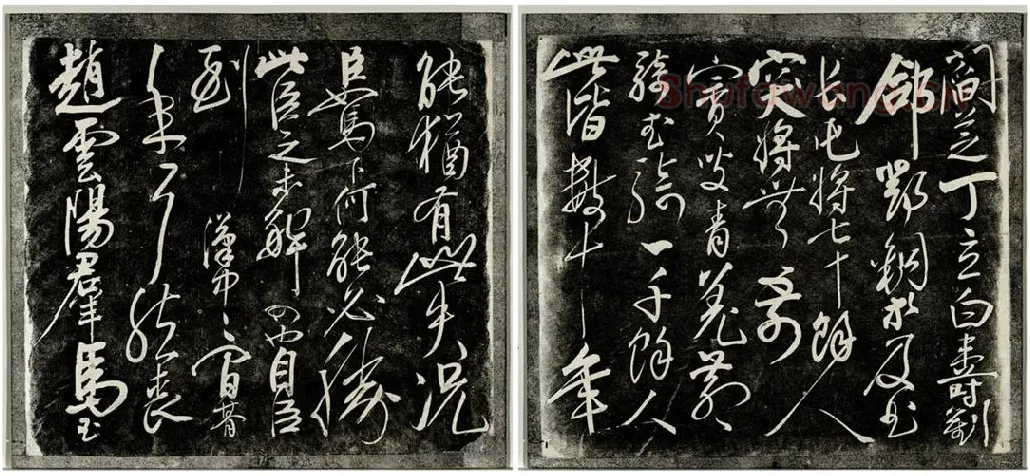 能猶有此失況
臣駑下何能必勝
此臣之未解四也自臣
到漢中中間朞
年耳然喪
趙雲陽群馬玉
閻芝丁立白壽劉
郃鄧銅等及曲
長屯將七十餘人
突將無前
賨叟青羌散
騎武騎一千餘人
此皆數十年
Shufawang.cn